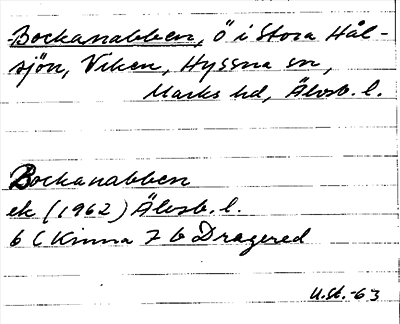 Bockanabben, ö i Stora Hål-
sjön, Viken, Hyssna sn,
Marks hd, Älvsb. l.
Bockanabben
ek (1962) Älvsb. l.
6 C Kinna 7 b Dragered
U.St. -63